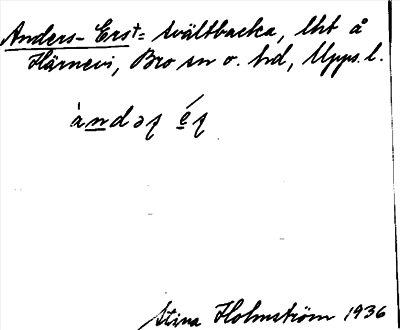 Anders-Ers†= tvältbacka, lht å
Härnevi, Bro sn o. hd, Upps. l.
àndəʂ éʂ
Stina Holmström 1936